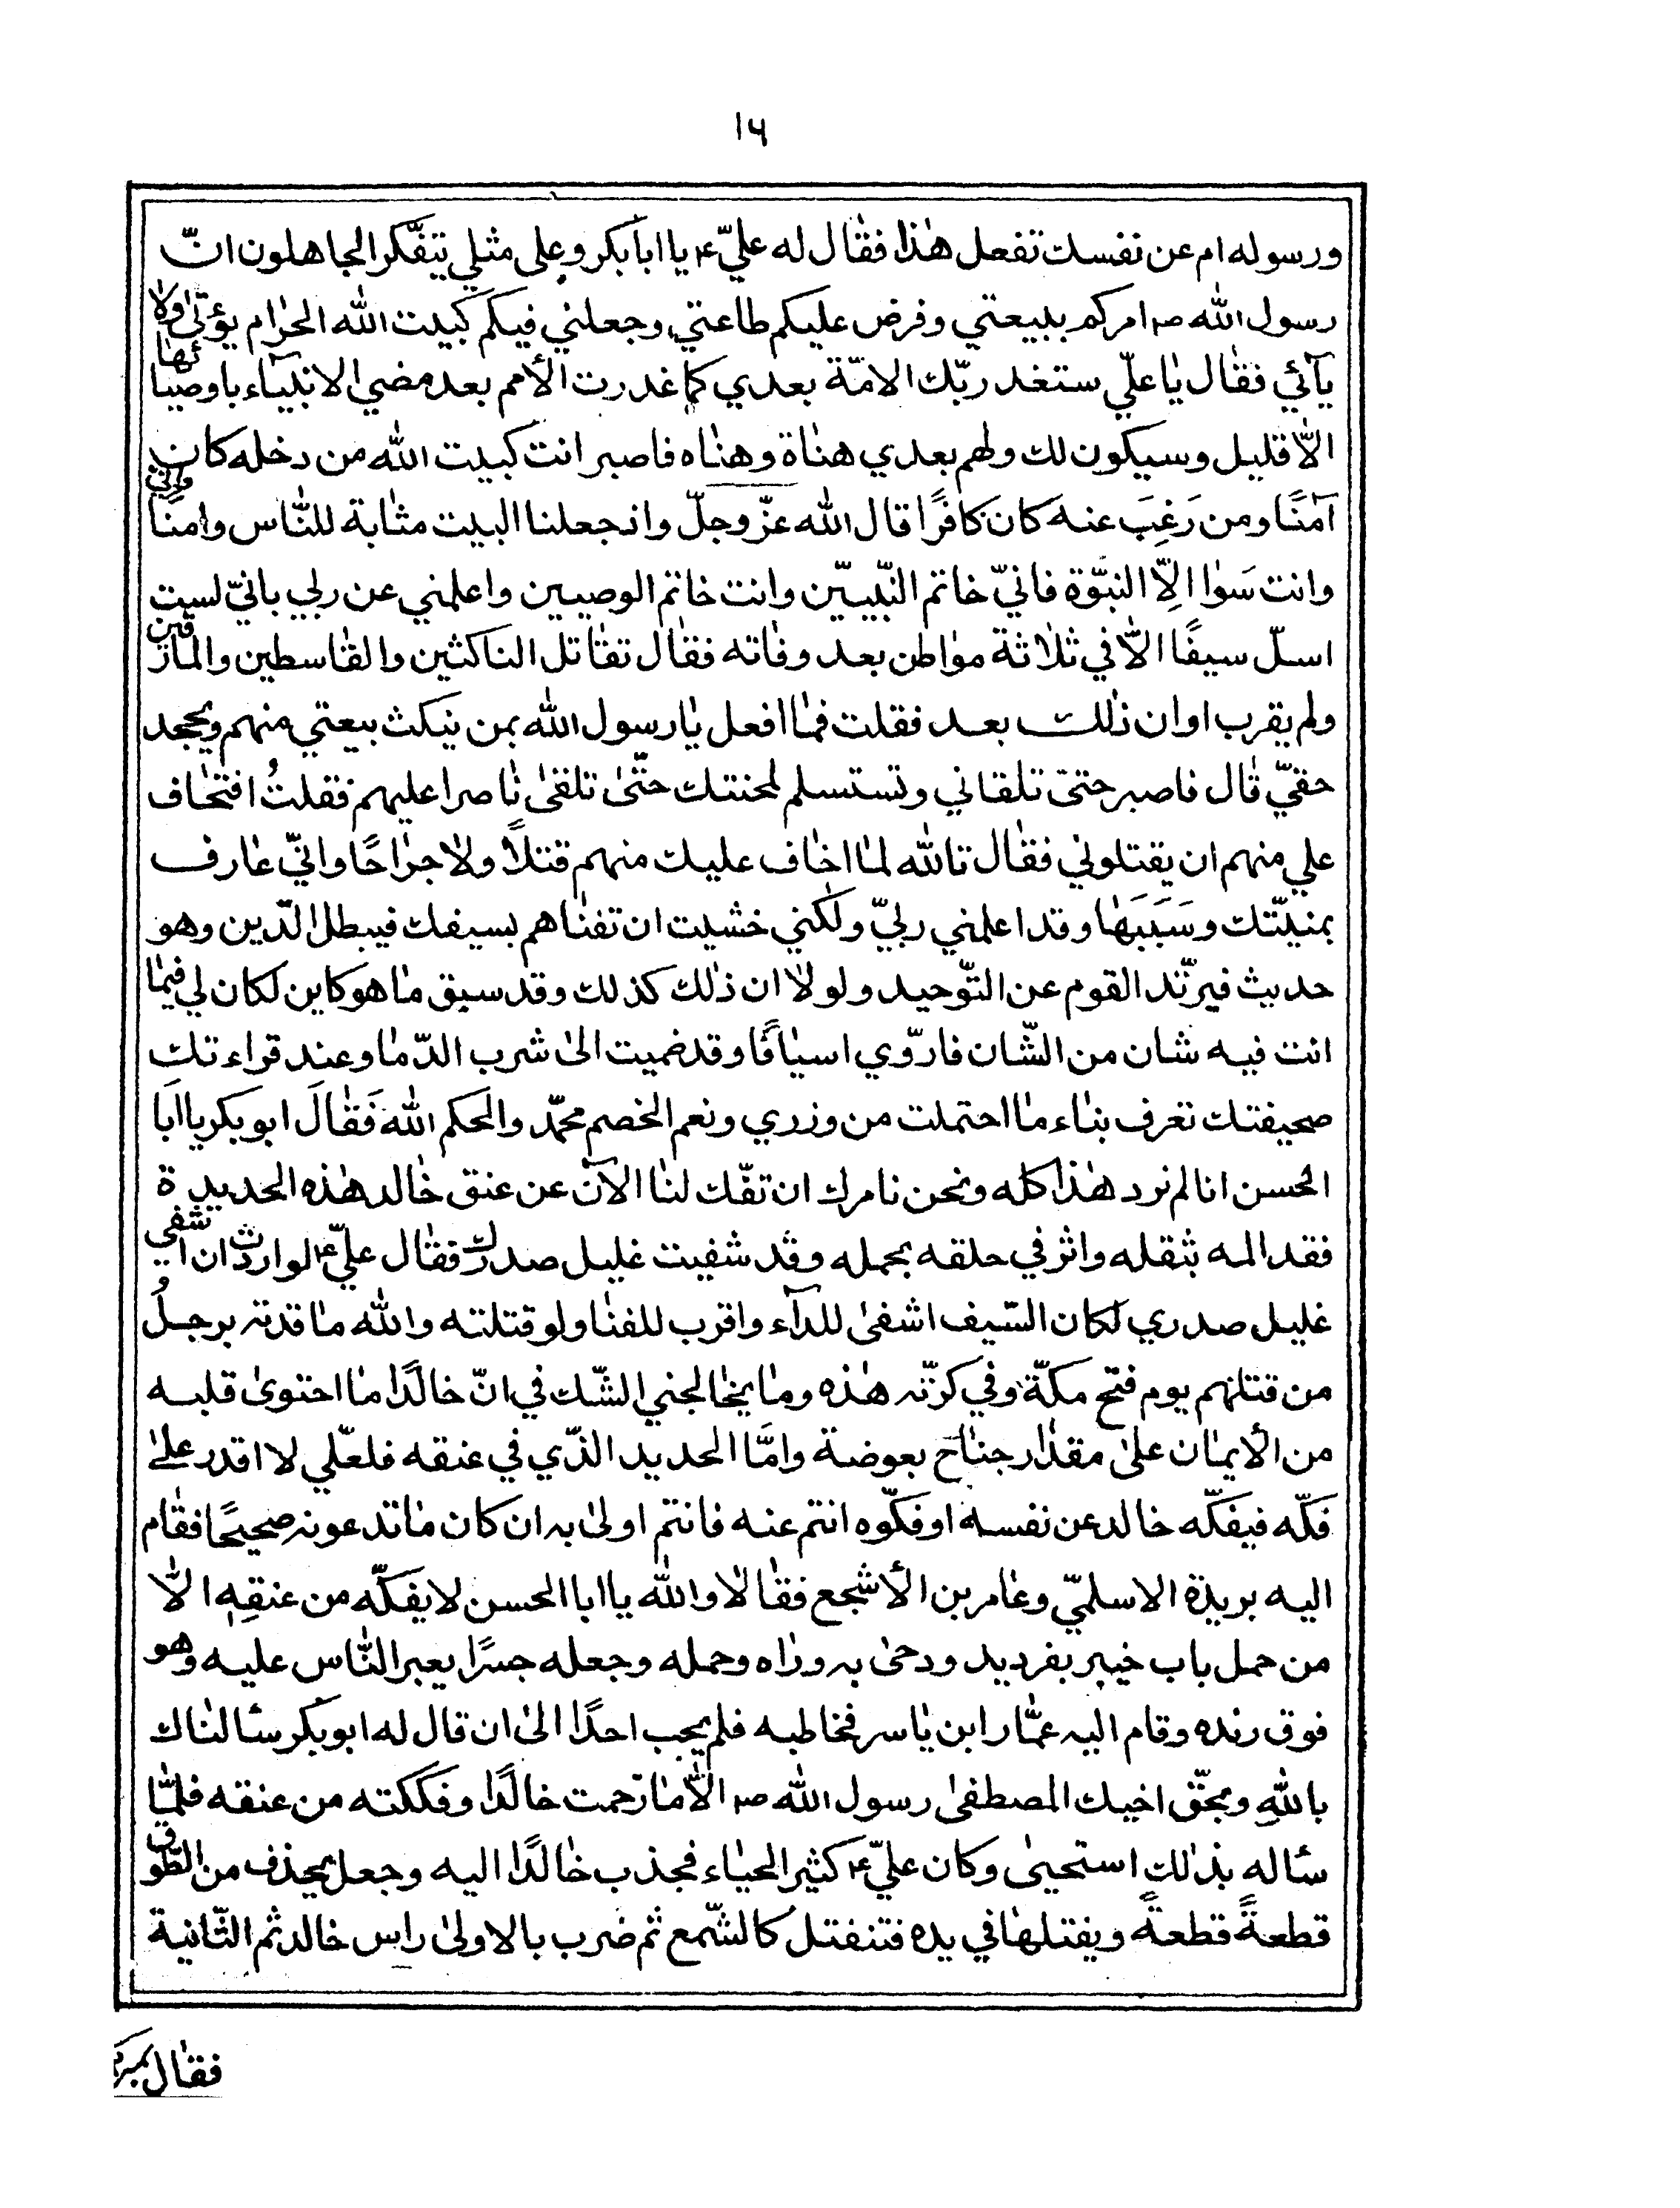 ١٦
ورسوله ام عن نفسك تفعل هٰذا فقٰال له عليّ ع يا ابا بكر وعلى مثلي يتفّكر الجاهلون انّ
رسول الله ص امركم ببيعتي وفرض عليكم طاعتي وجعلني فيكم كبيت الله الحرٰام يؤتىٰ ولٰا
يأتي فقٰال يٰا عليّ ستغدر بّك الامّة بعدي كما غدرت الأمم بعد مضي الانبيآء باوصيٰائهٰا
الّا قليل وسيكون لك ولهم بعدي هنٰاة وهنٰاه فاصبر انت كبيت الله من دخله كان
آمنًا ومن رَغِبَ عنه كان كافرًا قال الله عزّ وجلّ واذ جعلنا البيت مثٰابة للنّاس وامنًا وانّي
وانت سَوٰا الّا النبوّة فانيّ خاتم النّبييّن وانت خاتم الوصيين واعلمني عن ربي بانيّ لست
اسلّ سيفًا الّا في ثلٰاثة موٰاطن بعد وفٰاته فقٰال تقٰاتل الناكثين والقٰاسطين والمارقين
ولم يقرب اوان ذٰلك بعد فقلت فمٰا افعل يٰا رسول الله بمن ينكث بيعتي منهم ويجحد
حقيّ قٰال فاصبر حتىّ تلقاني وتستسلم لمحنتك حتّىٰ تلقىٰ نٰاصرا عليهم فقلتُ افتخٰاف
علي منهم ان يقتلوني فقٰال تالله لمٰا اخٰاف عليك منهم قتلًا ولٰا جرٰاحًا وانيّ عٰارف
بمنيّتك وسَبَبَهٰا وقد اعلمني ربيّ ولٰكني خشيت ان تفنٰاهم بسيفك فيبطل الدّين وهو
حديث فيرتّد القوم عن التوّحيد ولولٰا ان ذٰلك كذلك وقد سبق مٰا هو كاين لكان لي فيمٰا
انت فيه شان من الشّان فاروّي اسيٰافًا وقد ضميت الىٰ شرب الدّمٰا وعند قراءتك
صحيفتك تعرف بنٰاء مٰا احتملت من وزري ونعم الخصم محمّد والحكم الله فَقٰالَ ابو بكر يا اَبَا
الحسن انا لم نرد هٰذا كله ونحن نامرك ان تفّك لنٰا الآن عن عنق خٰالد هٰذه الحديدة
فقد المه بثقله واثر في حلقه بحمله وقد شفيت غليل صدرك فقٰال عليّ ع لو اردت ان اشفي
غليل صدري لكان السّيف اشفىٰ للدآء واقرب للفنٰا ولو قتلته والله مٰا قدته برجلُ
من قتلتهم يوم فتح مكّة وفي كرّته هٰذه ومٰا يخٰالجني الشّك في انّ خالدًا مٰا احتوىٰ قلبه
من الأيمٰان علىٰ مقدٰار جنٰاح بعوضة وامَّا الحديد الذّي في عنقه فلعّلي لا اقدر علىٰ
فكّه فيفكّه خالد عن نفسه او فكّوه انتم عنه فانتم اولىٰ به ان كان مٰا تدعونه صحيحًا فقٰام
اليه بريدة الاسلميّ وعٰامر بن الأشجع فقٰالٰا والله يا ابا الحسن لا يفكّه من عنقِهِ الّا
من حمل باب خيبر بفرد يد ودحىٰ به ورٰاه وحمله وجعله جسرًا يعبر النّاس عليه وهو
فوق زنده وقام اليه عمّار ابن يٰاسر فخاطبه فلم يجب احدًا الىٰ ان قال له ابو بكر سئالنٰاك
باللهِ وبحقّ اخيك المصطفىٰ رسول الله ص الّا مٰا رحمت خالدًا وفككته من عنقه فلمّا
سئاله بذٰلك استحيىٰ وكان عليّ ع كثير الحيٰاء فجذب خٰالدًا اليه وجعل يحذف من الطّوق
قطعةً قطعةً ويفتلهٰا في يده فتنفتل كالشّمع ثم ضرب بالاولىٰ راس خالد ثم الثّانية
فقٰال